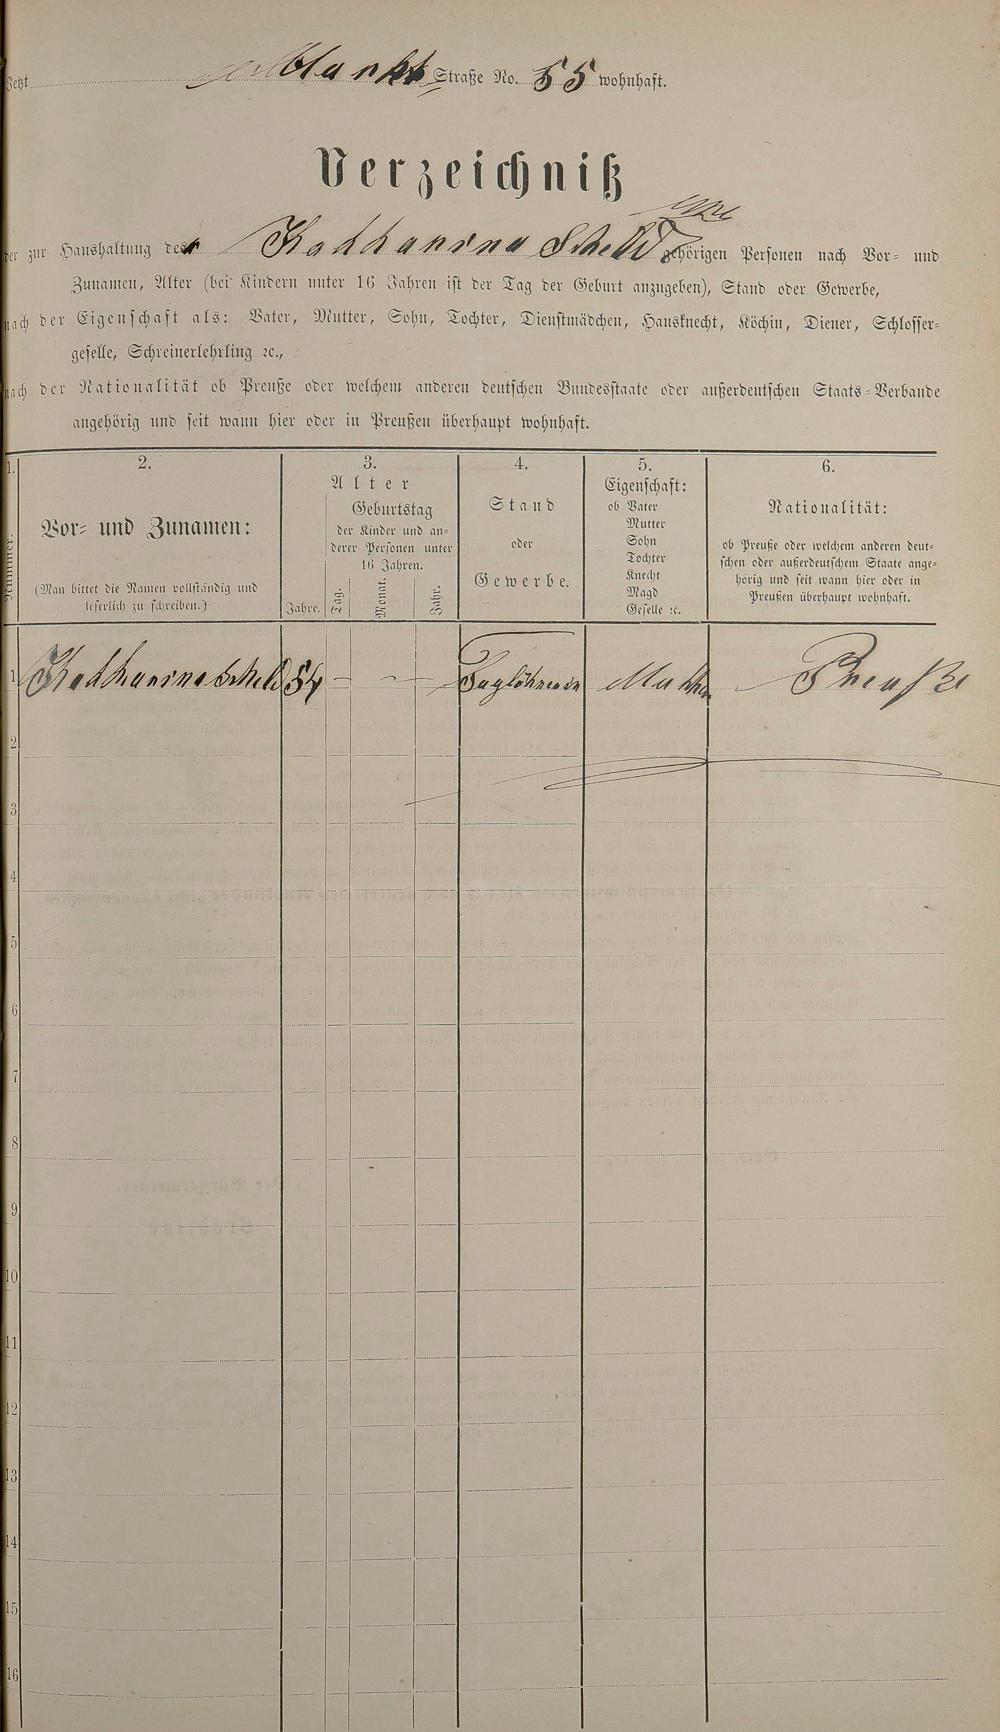 Jetzt Markt Straße No. 55 wohnhaft.
Verzeichniß
der zur Haushaltung des Katharina Scheld gehörigen Personen nach Vor- und
Zunamen, Alter (bei Kindern unter 16 Jahren ist der Tag der Geburt anzugeben), Stand oder Gewerbe,
nach der Eigenschaft als: Vater, Mutter, Sohn, Tochter, Dienstmädchen, Hausknecht, Köchin, Diener, Schlosser-
geselle, Schreinerlehrling ꝛc.,
nach der Nationalität ob Preuße oder welchem anderen deutschen Bundesstaate oder außerdeutschen Staats-Verbande
angehörig und seit wann hier oder in Preußen überhaupt wohnhaft.
1.
Nummer.
2.
Vor- und Zunamen:
(Man bittet die Namen vollständig und
leserlich zu schreiben.)
3.
Alter
Jahre.
Geburtstag
der Kinder und an-
derer Personen unter
16 Jahren.
Tag.
Monat.
Jahr.
4.
Stand
oder
Gewerbe.
5.
Eigenschaft:
ob Vater
Mutter
Sohn
Tochter
Knecht
Magd
Geselle ꝛc.
6.
Nationalität:
ob Preuße oder welchem anderen deut-
schen oder außerdeutschem Staate ange-
hörig und seit wann hier oder in
Preußen überhaupt wohnhaft.
1 Katharina Scheld 54 – – – Taglöhnerin Mutter Preuße
2
3
4
5
6
7
8
9
10
11
12
13
14
15
16